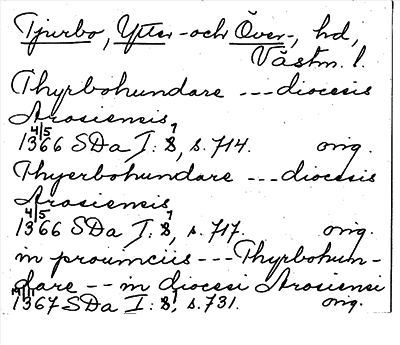 Tjurbo, Ytter- och Över-, hd,
Västm. l.
Thyrbohundare --- diocesis
Arosiensis
4/5 1366 SDa I: 8, s. 714. orig.
Thyerbohundare --- diocesis
Arosiensis
4/5 1366 SDa I: 8, s. 717. orig.
in prouinciis --- Thyrbohun-
dare -- in diocesi Arosiensi
1367 SDa I: 8, s. 731. orig.